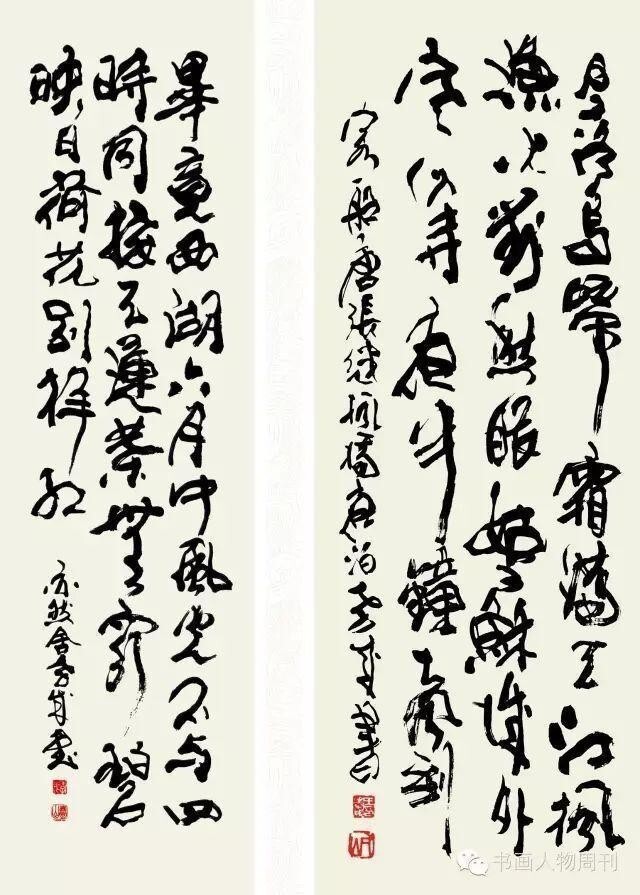 月落烏啼霜滿天江楓
漁火對愁眠姑蘇城外
寒山寺夜半鐘聲到
客船 唐張继楓橋夜泊 書
畢竟西湖六月中風光不与四
時同接天蓮葉無窮碧
映日荷花别样红
亦然舍 書
书画人物周刊